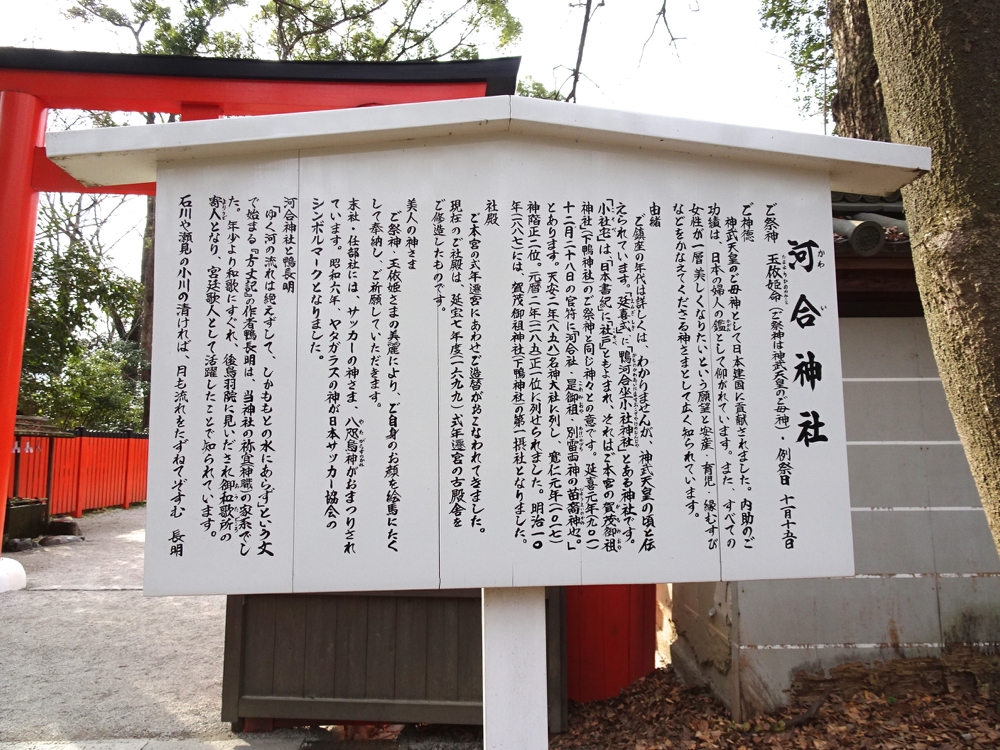 河合神社
ご祭神 玉依姫命(ご祭神は神武天皇のご母神)・例祭日 十一月十五日
ご神徳
神武天皇のご母神として日本建国に貢献されました。内助のご
功績は、日本の婦人の鑑として仰がれています。また、すべての
女性が一層美しくなりたいという願望と安産・育児・縁むすび
などをかなえてくださる神さまとして広く知られています。
由緒
ご鎮座の年代は詳しくは、わかりませんが、神武天皇の頃と伝
えられています。『延喜式』に「鴨河合坐小社神社」とある神社です。
「小社宅」は、『日本書紀』に「社戸」ともよまれ、それはご本宮の賀茂御祖
神社(下鴨神社)のご祭神と同じ神々との意です。延喜元年(九〇一)
十二月二十八日の官符に「河合社 是御祖、別雷両神の苗裔神也。」
とあります。天安二年(八五八)名神大社に列し、寛仁元年(一〇一七)
神階正二位。元暦二年(一一八五)正一位に列せられました。明治一〇
年(一八八七)には、賀茂御祖神社(下鴨神社)の第一摂社となりました。
社殿
ご本宮の式年遷宮にあわせご造替がおこなわれてきました。
現在のご社殿は、延宝七年度(一六七九)式年遷宮の古殿舎を
ご修造したものです。
美人の神さま
ご祭神、玉依姫さまの美麗により、ご自身のお顔を絵馬にたく
して奉納し、ご祈願していただきます。
末社・任部社には、サッカーの神さま、八咫烏神がおまつりされ
ています。昭和六年、ヤタガラスの神が日本サッカー協会の
シンボルマークとなりました。
河合神社と鴨長明
「ゆく河の流れは絶えずして、しかももとの水にあらず」という文
で始まる『方丈記』の作者鴨長明は、当神社の祢宜(神職)の家系でし
た。年少より和歌にすぐれ、後鳥羽院に見いだされ御和歌所の
寄人となり、宮廷歌人として活躍したことで知られています。
石川や瀬見の小川の清ければ、月も流れをたずねてぞすむ 長明